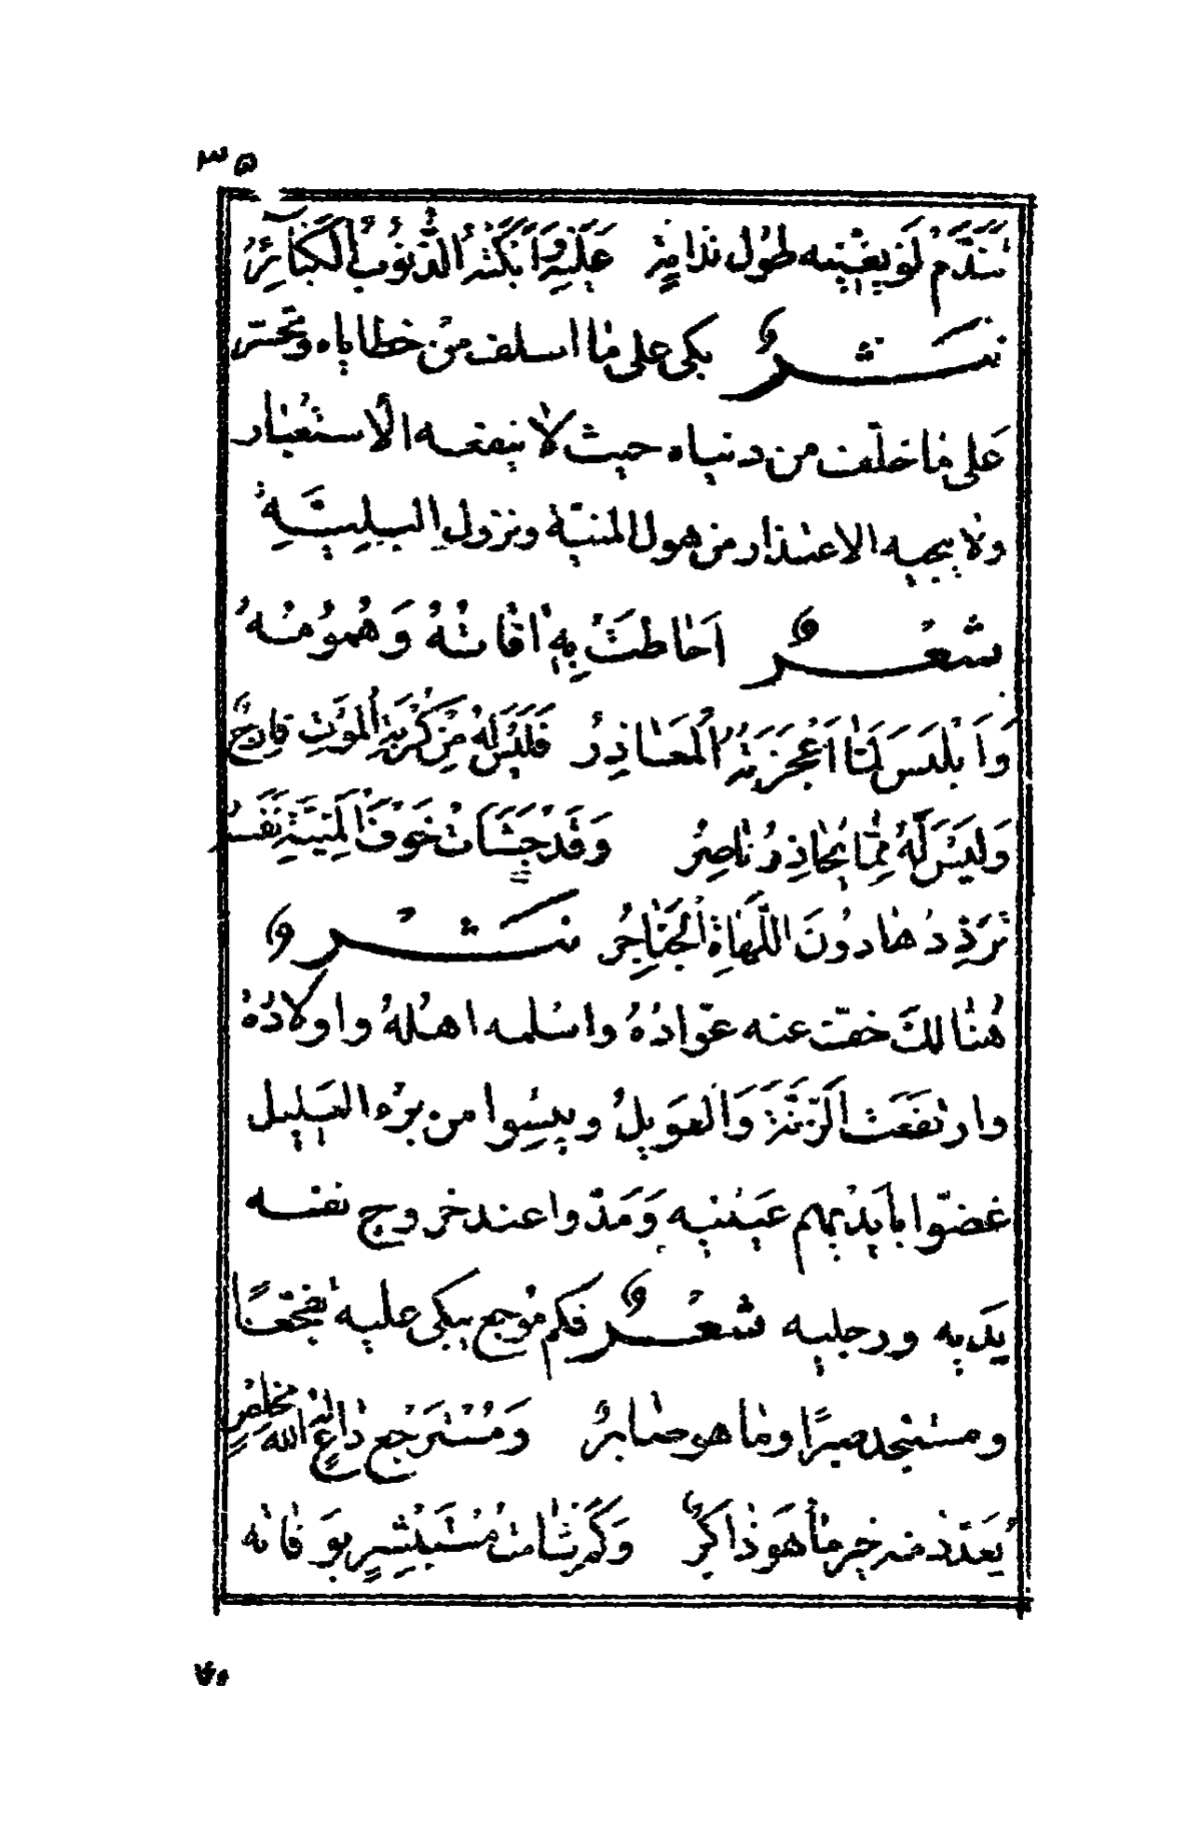 ٣٥
تَنَدَّمَ لَوْ يُغْنِيهِ طُولُ نَدَامَةٍ عَلَيْهِ وَأَبْكَتْهُ الذُّنُوبُ الْكَبَائِرُ
نَثْرٌ بكى على ما اسلف من خطاياه وتحسّر
عَلى ما خلّف من دنياه حيث لا ينفعه الاستعبار
ولا ينجيه الاعتذار من هول المنيّة ونزول البليّة
شِعْرٌ اَحاطَتْ بِهِ اٰفاتُهُ وَهُمُومُهُ
وَاَبْلَسَ لَمّا اَعْجَزَتْهُ الْمَعَاذِرُ فَلَيْسَ لَهُ مِنْ كُرْبَةِ الْمَوْتِ فارِجٌ
وَلَيْسَ لَهُ مِمّا يُحاذِرُ ناصِرُ وَقَدْ جَشَأَتْ خَوْفَ الْمَنِيَّةِ نَفْسُهُ
تُرَدِّدُها دُونَ اللَّهَاةِ الْحَنَاجِرُ نَثْرٌ
هُنالِكَ خفّ عنه عوّادُهُ واسلمه اهلُهُ واولادُهُ
وارتفَعَتِ الرَّنَّةُ وَالْعَوِيلُ ويئِسُوا من برْءِ العَلِيل
غضّوا بأيديهم عَيْنيه وَمَدّوا عند خروج نفسه
يَدَيه ورجليه شِعْرٌ فكم مُوجع يبكى عليه تفجّعًا
ومستنجد صبرًا وما هو صابرٌ وَمُسْتَرجع داعٍ لهُ اللهَ مخلصٍ
يُعَدّدُ منه خير ما هو ذاكرٌ وَكَمْ شامتٍ مُسْتَبْشِرٍ بوَفاته
٧٠